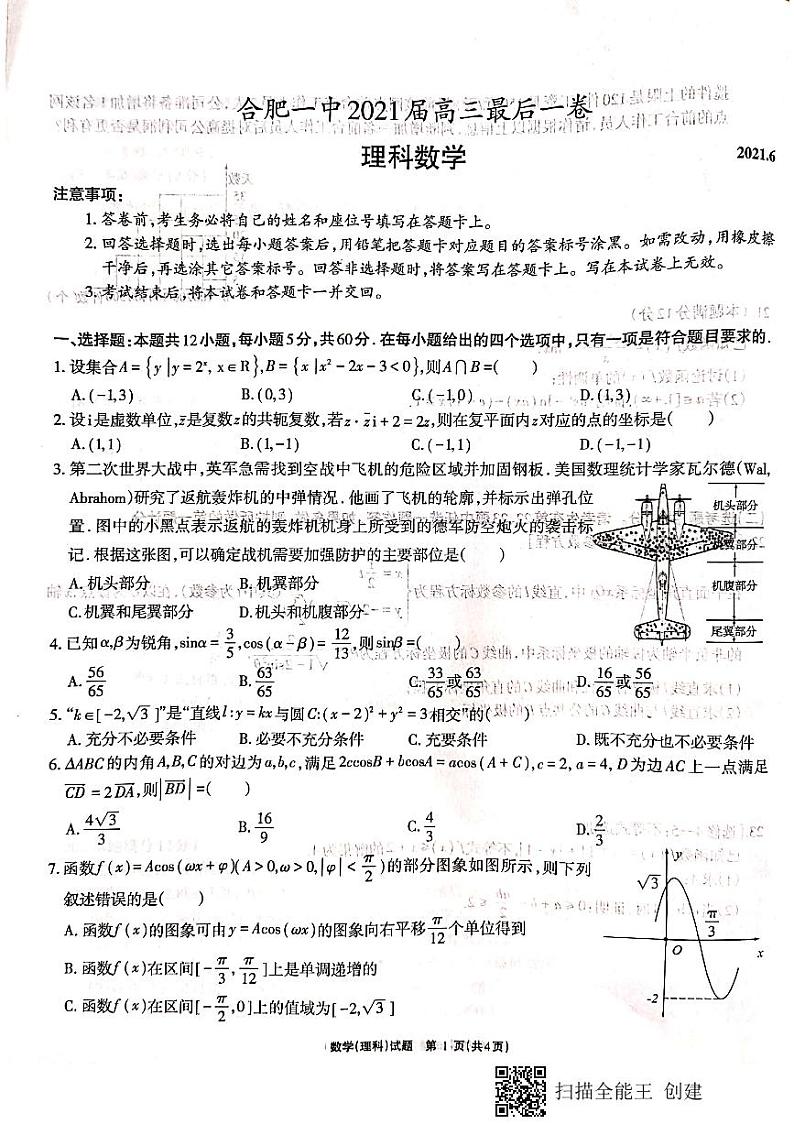 合肥一中2021届高三最后一卷
理科数学
2021.6
注意事项:
1. 答卷前,考生务必将自己的姓名和座位号填写在答题卡上。
2. 回答选择题时,选出每小题答案后,用铅笔把答题卡对应题目的答案标号涂黑。如需改动,用橡皮擦
干净后,再选涂其它答案标号。回答非选择题时,将答案写在答题卡上。写在本试卷上无效。
3. 考试结束后,将本试卷和答题卡一并交回。
一、选择题:本题共12小题,每小题5分,共60分.在每小题给出的四个选项中,只有一项是符合题目要求的.
1. 设集合A={y|y=2ˣ, x∈R},B={x|x²-2x-3<0},则A∩B=( )
A.(-1,3) B.(0,3) C.(-1,0) D.(1,3)
2. 设i是虚数单位,z̄是复数z的共轭复数,若z·z̄i+2=2z,则在复平面内z对应的点的坐标是( )
A.(1,1) B.(1,-1) C.(-1,1) D.(-1,-1)
3. 第二次世界大战中,英军急需找到空战中飞机的危险区域并加固钢板.美国数理统计学家瓦尔德(Wal,
Abrahom)研究了返航轰炸机的中弹情况.他画了飞机的轮廓,并标示出弹孔位
置.图中的小黑点表示返航的轰炸机机身上所受到的德军防空炮火的袭击标
记.根据这张图,可以确定战机需要加强防护的主要部位是( )
A. 机头部分 B. 机翼部分
C. 机翼和尾翼部分 D. 机头和机腹部分
机头部分
机翼部分
机腹部分
尾翼部分
4. 已知α,β为锐角,sinα=3/5,cos(α-β)=12/13,则sinβ=( )
A. 56/65 B. 63/65 C. 33/65或63/65 D. 16/65或56/65
5. “k∈[-2,√3]”是“直线l:y=kx与圆C:(x-2)²+y²=3相交”的( )
A. 充分不必要条件 B. 必要不充分条件 C. 充要条件 D. 既不充分也不必要条件
6. ΔABC的内角A,B,C的对边为a,b,c,满足2ccosB+bcosA=acos(A+C),c=2,a=4,D为边AC上一点满足
CD=2DA,则|BD|=( )
A. 4√3/3 B. 16/9 C. 4/3 D. 2/3
7. 函数f(x)=Acos(ωx+φ)(A>0,ω>0,|φ|<π/2)的部分图象如图所示,则下列
叙述错误的是( )
A. 函数f(x)的图象可由y=Acos(ωx)的图象向右平移π/12个单位得到
B. 函数f(x)在区间[-π/3,π/12]上是单调递增的
C. 函数f(x)在区间[-π/2,0]上的值域为[-2,√3]
y
√3
π/3
O
x
-2
数学(理科)试题 第1页(共4页)
扫描全能王 创建